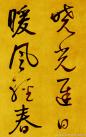 曉光日
暖風經春